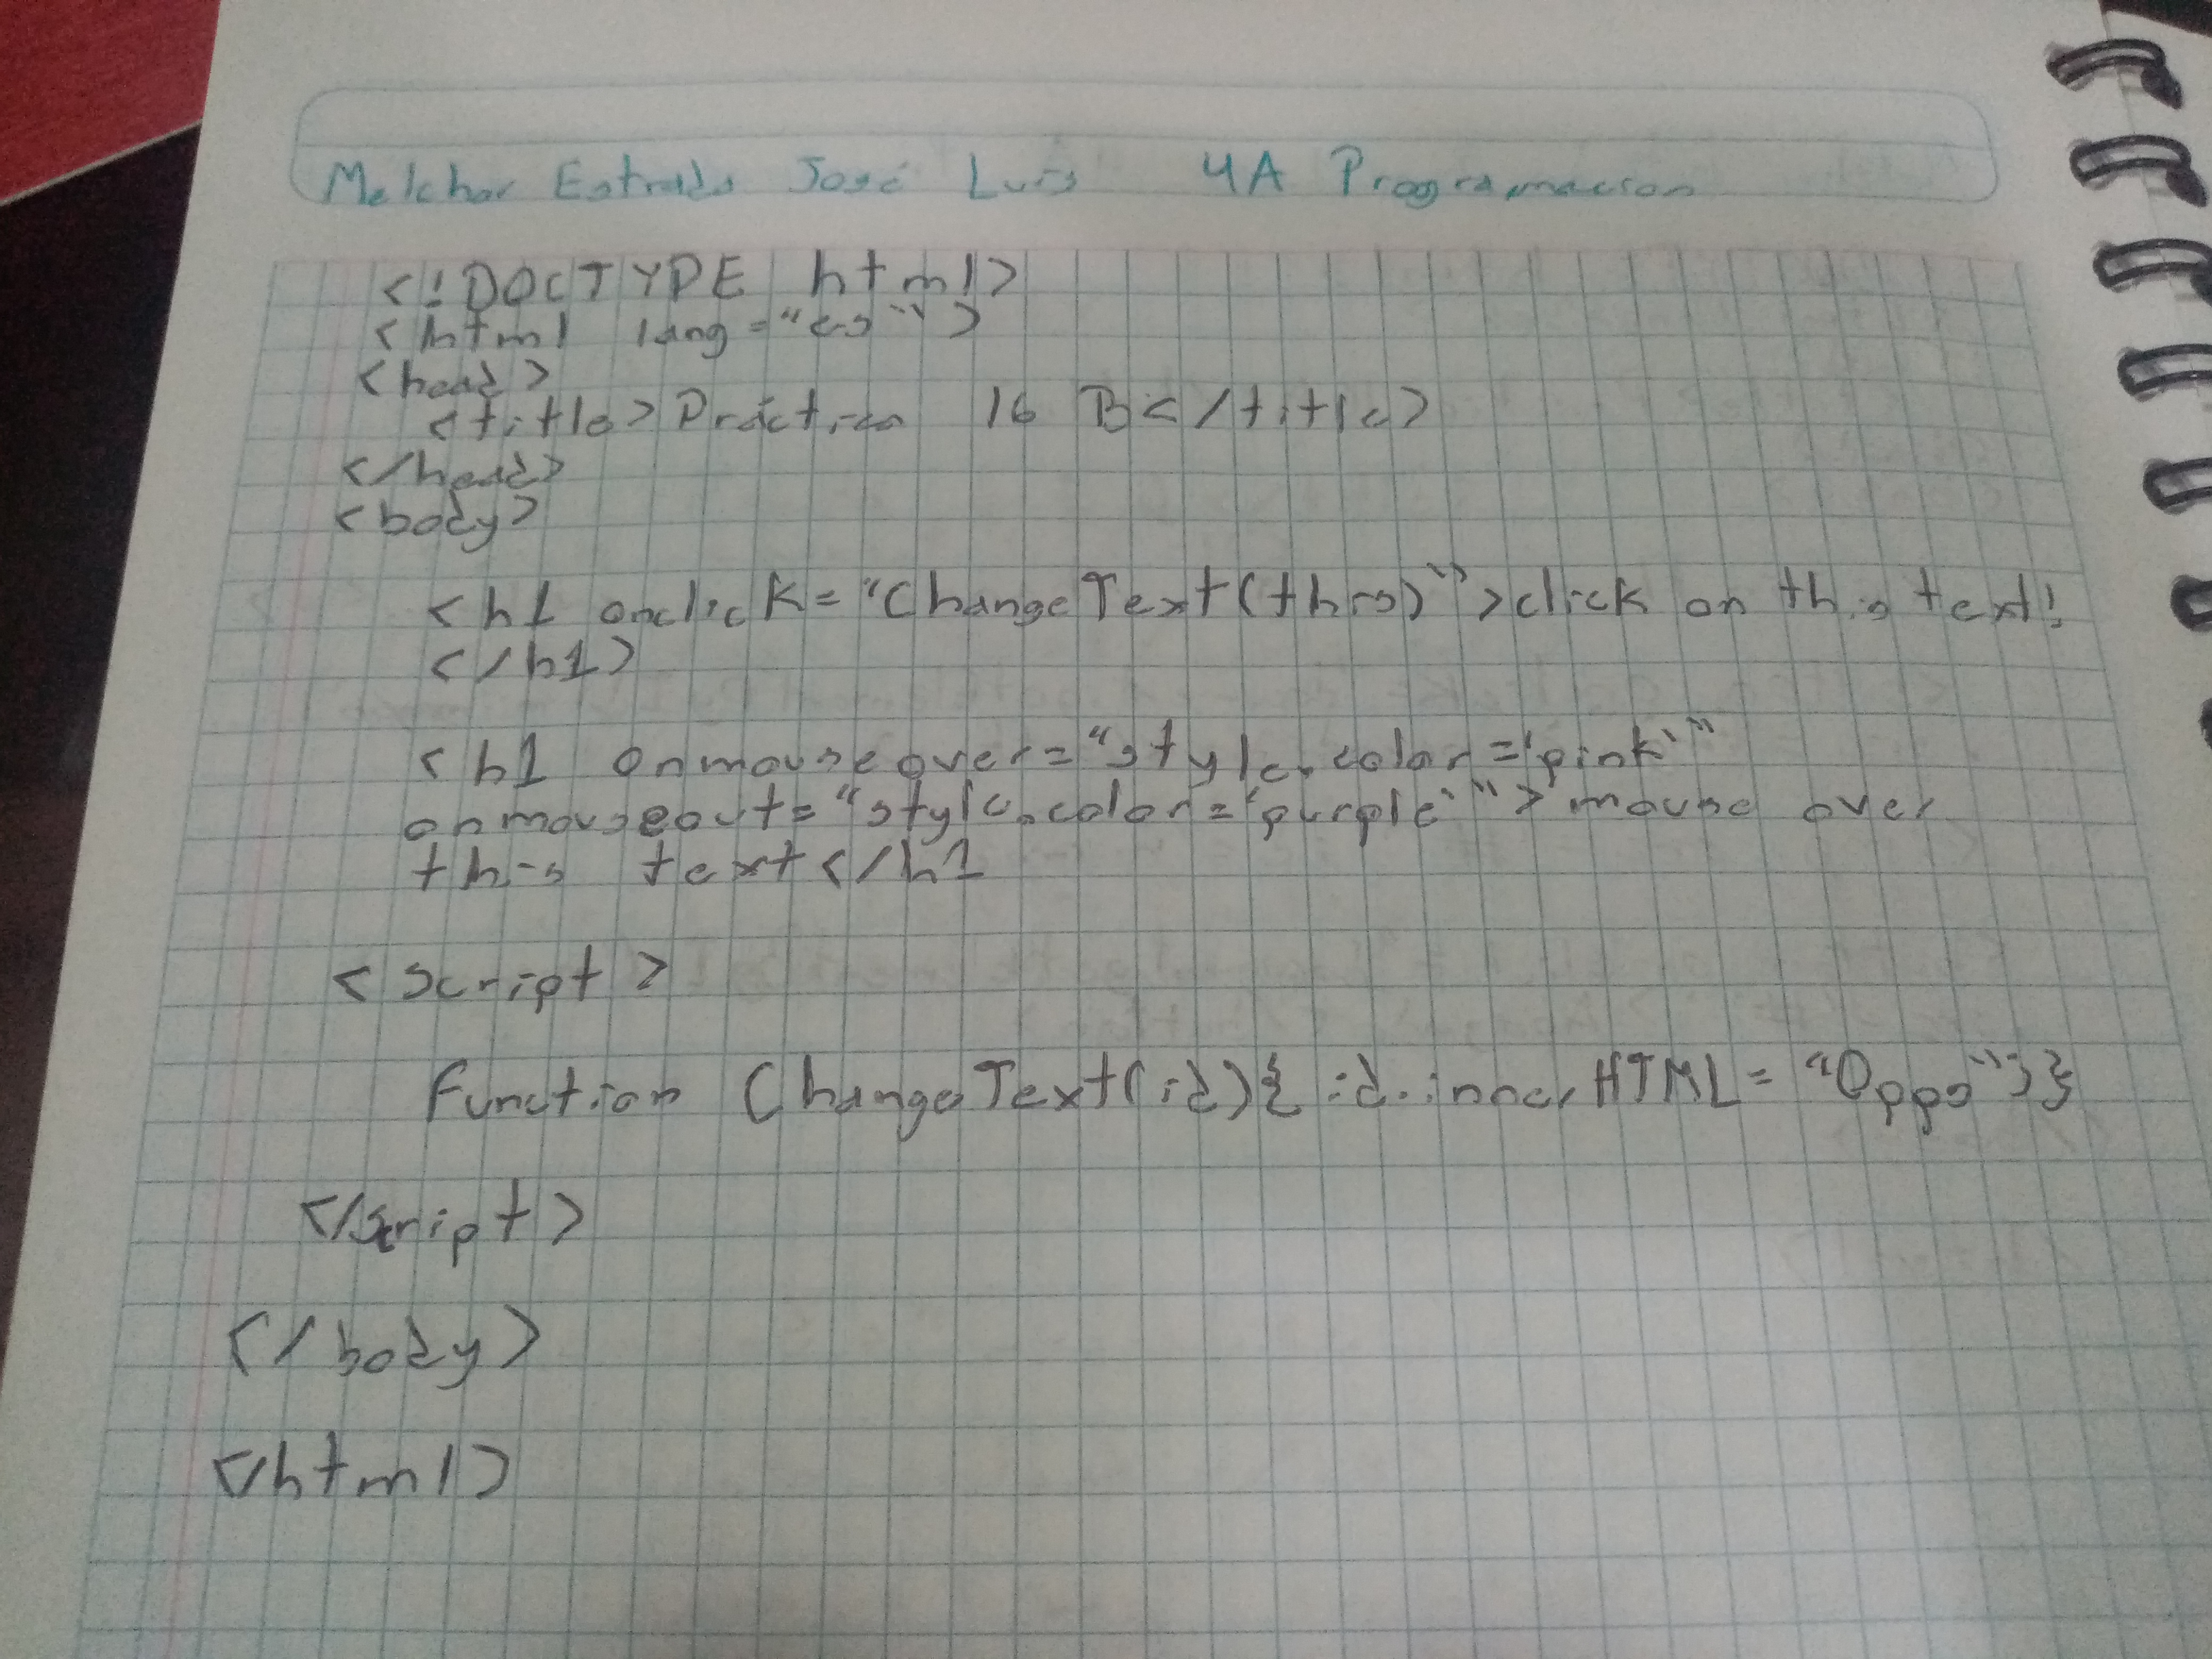 Melchor Estrada José Luis 4A Programacion
<!DOCTYPE html>
<html lang="es">
<head>
<title>Práctica 16 B</title>
</head>
<body>
<h1 onclick="ChangeText(this)">click on this text!
</h1>
<h1 onmouseover="style.color='pink'"
onmouseout="style.color='purple'">mouse over
this text</h1
<script>
function ChangeText(id){ id.innerHTML= "Opps";}
</script>
</body>
</html>